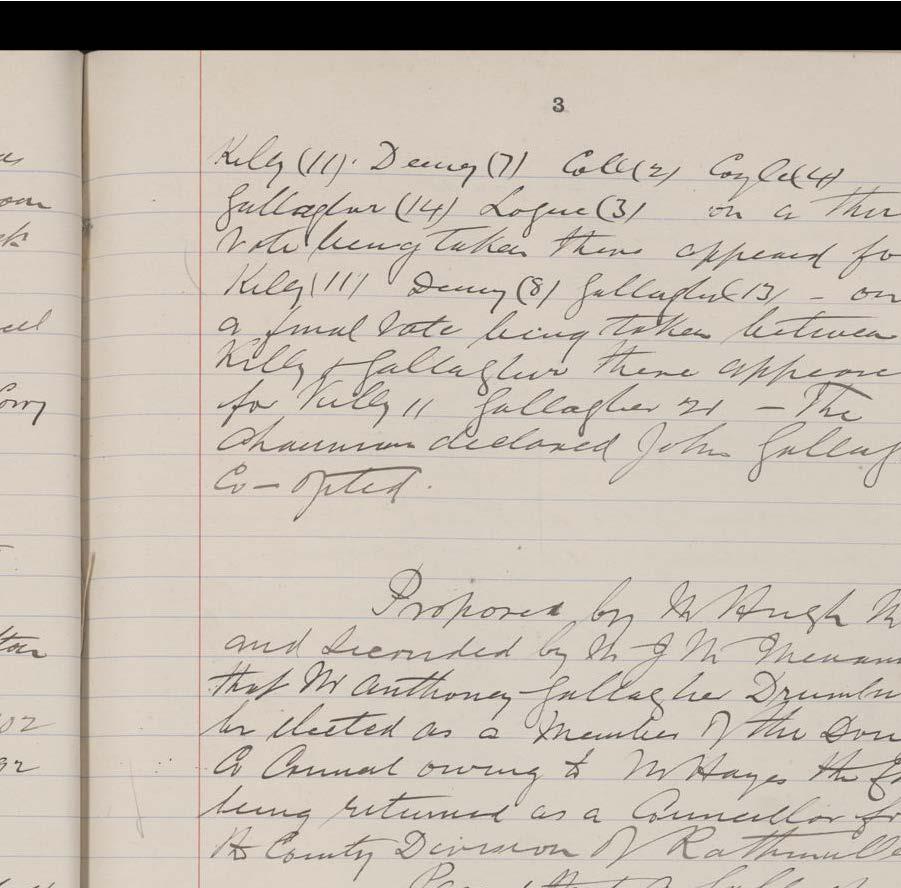 3
Kelly (11). Deeney (7) Coll (2) Coyle (4)
Gallagher (14) Logue (3) on a thir
Vote being taken there appeared fo
Kelly (11) Deeney (8) Gallagher (13) – on
a final Vote being taken between
Kelly & Gallagher there appeare
for Kelly 11 Gallagher 21 – The
Chairman declared John Gallag
Co-opted.
Proposed by Mr Hugh
and seconded by Mr J M
that Mr Anthoney Gallagher
be elected as a Member of the Don
Co Council owing to Mr Hayes the
being returned as a Councillor fr
County Division of Rathmulle